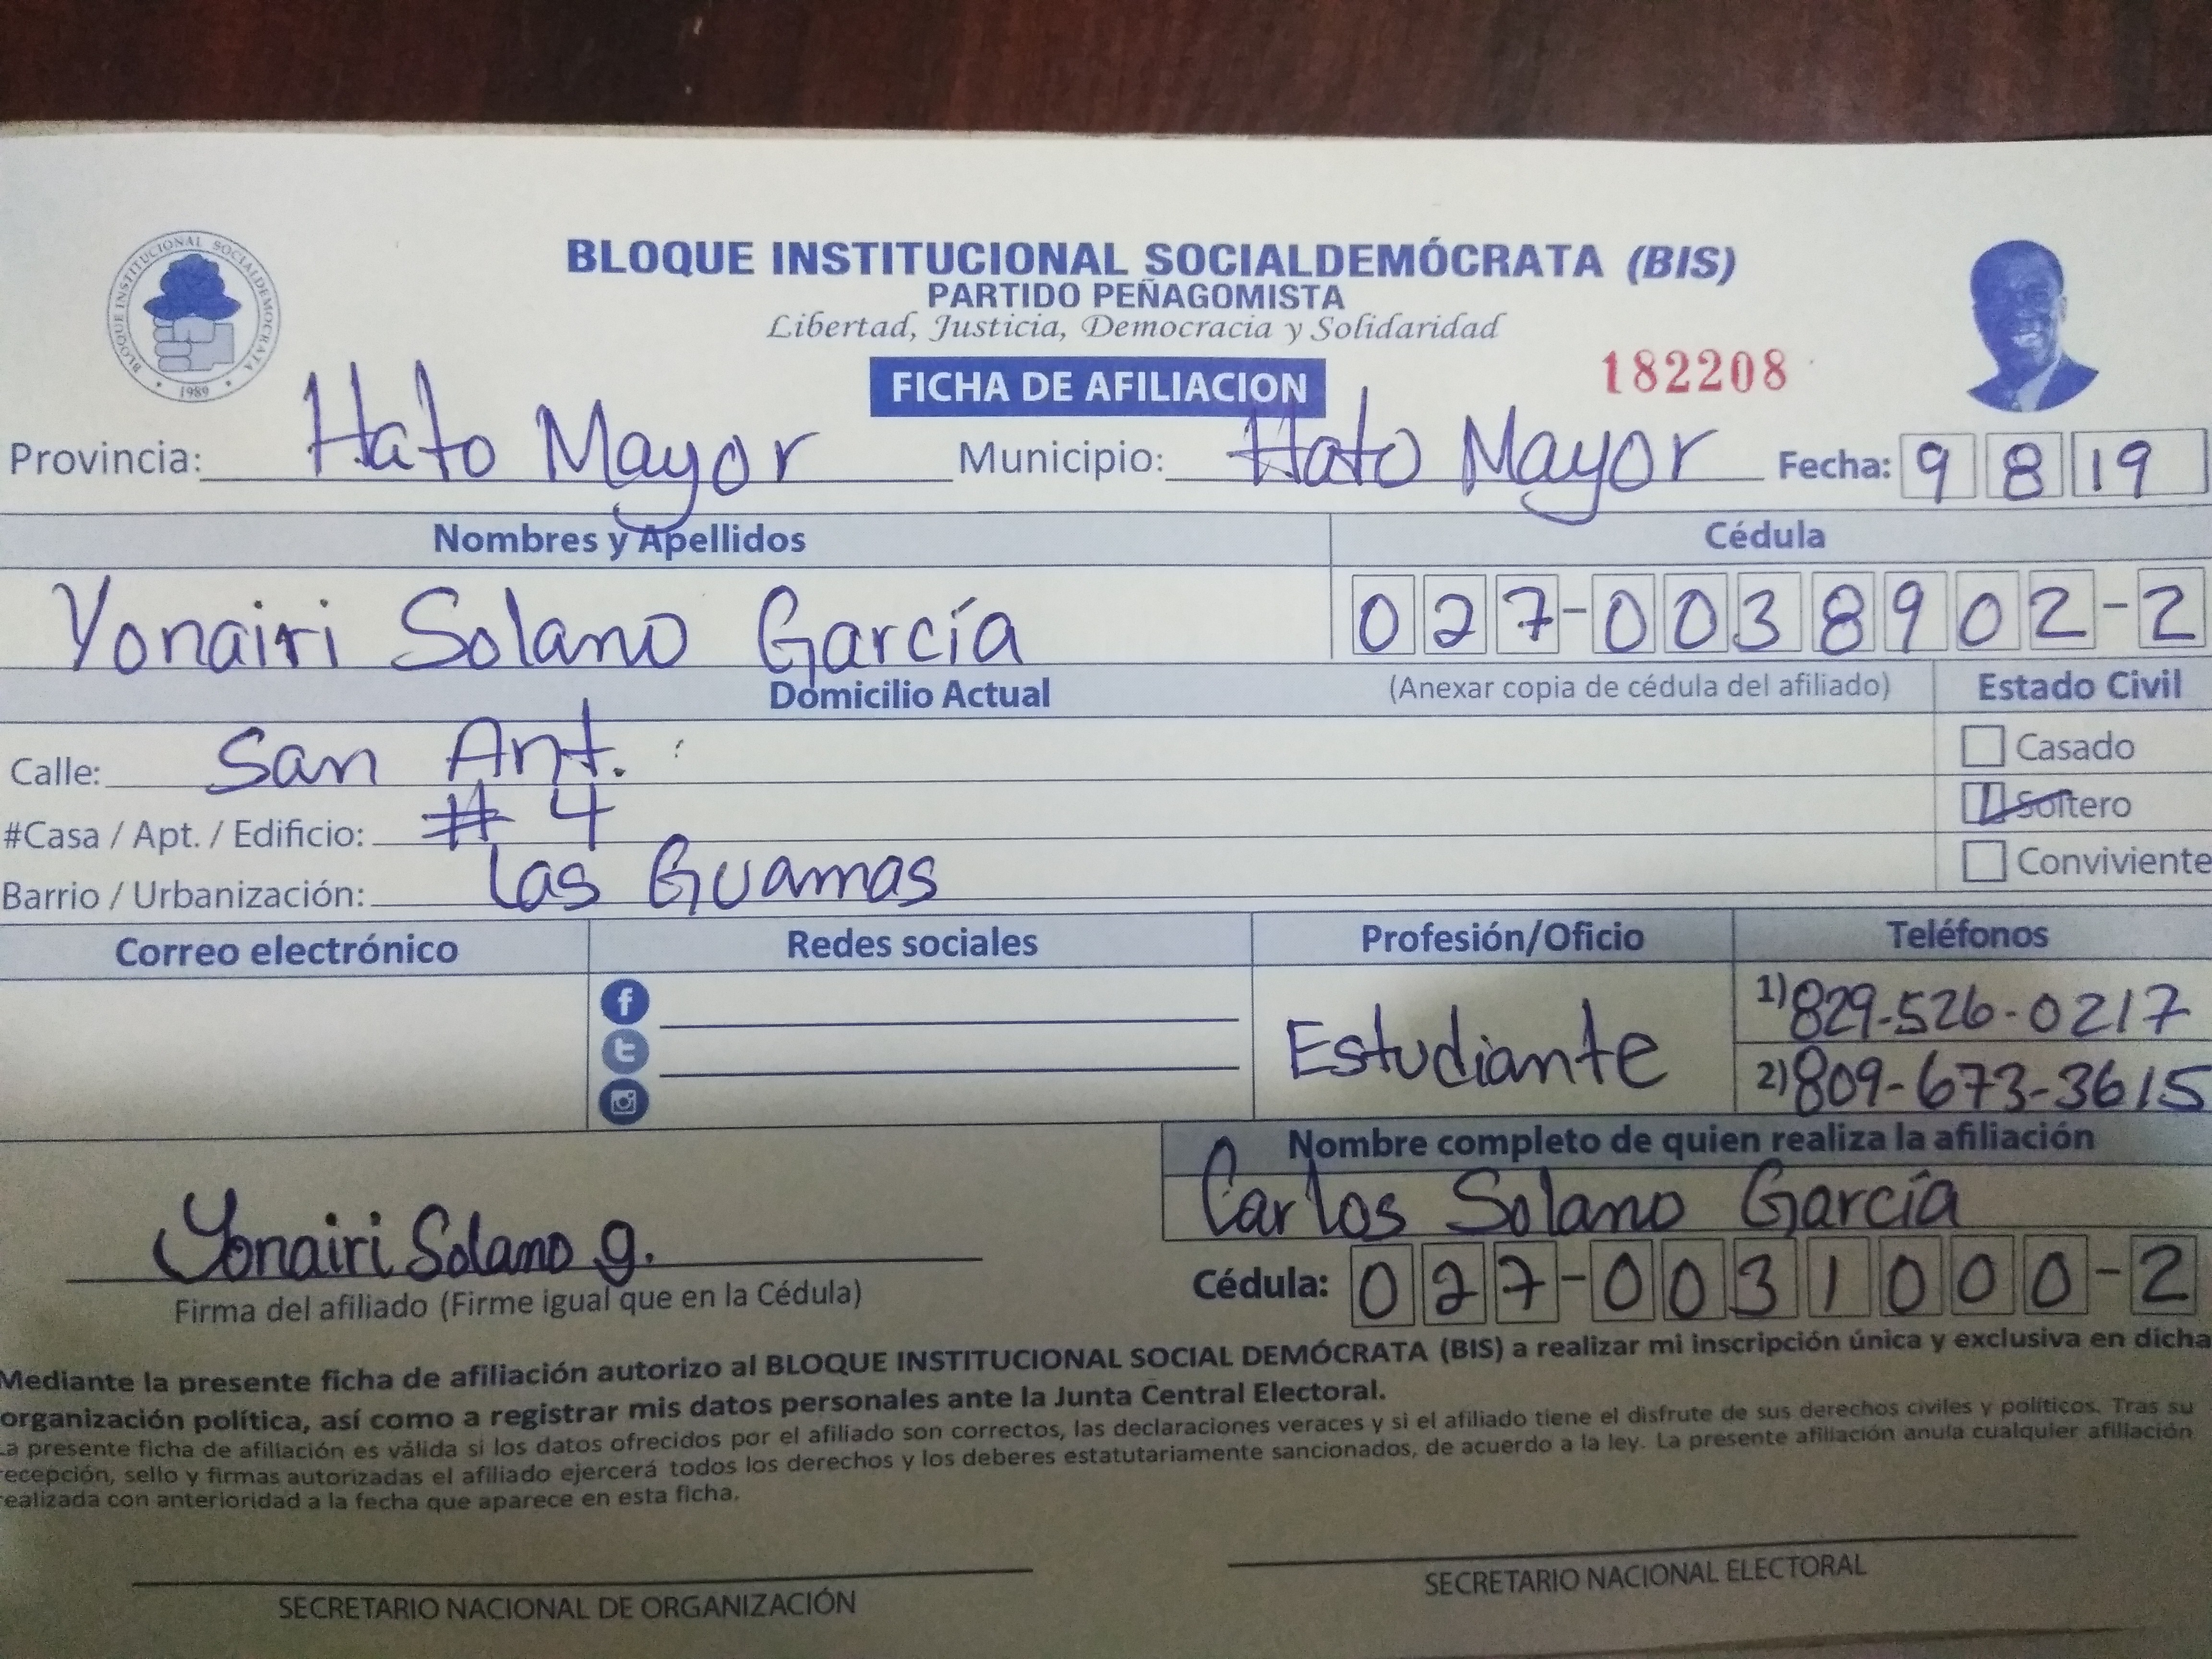 BLOQUE INSTITUCIONAL SOCIALDEMOCRATA
1989
BLOQUE INSTITUCIONAL SOCIALDEMÓCRATA (BIS)
PARTIDO PEÑAGOMISTA
Libertad, Justicia, Democracia y Solidaridad
FICHA DE AFILIACION 182208
Provincia: Hato Mayor Municipio: Hato Mayor Fecha: 9 8 19
Nombres y Apellidos Cédula
Yonairi Solano García 027-0038902-2
Domicilio Actual (Anexar copia de cédula del afiliado) Estado Civil
Calle: San Ant. Casado
#Casa / Apt. / Edificio: # 4 Soltero
Barrio / Urbanización: Las Guamas Conviviente
Correo electrónico Redes sociales Profesión/Oficio Teléfonos
Estudiante 1) 829-526-0217
2) 809-673-3615
Nombre completo de quien realiza la afiliación
Carlos Solano García
Yonairi Solano g.
Cédula: 027-0031000-2
Firma del afiliado (Firme igual que en la Cédula)
Mediante la presente ficha de afiliación autorizo al BLOQUE INSTITUCIONAL SOCIAL DEMÓCRATA (BIS) a realizar mi inscripción única y exclusiva en dicha
organización política, así como a registrar mis datos personales ante la Junta Central Electoral.
La presente ficha de afiliación es válida si los datos ofrecidos por el afiliado son correctos, las declaraciones veraces y si el afiliado tiene el disfrute de sus derechos civiles y políticos. Tras su
recepción, sello y firmas autorizadas el afiliado ejercerá todos los derechos y los deberes estatutariamente sancionados, de acuerdo a la ley. La presente afiliación anula cualquier afiliación
realizada con anterioridad a la fecha que aparece en esta ficha.
SECRETARIO NACIONAL DE ORGANIZACIÓN SECRETARIO NACIONAL ELECTORAL